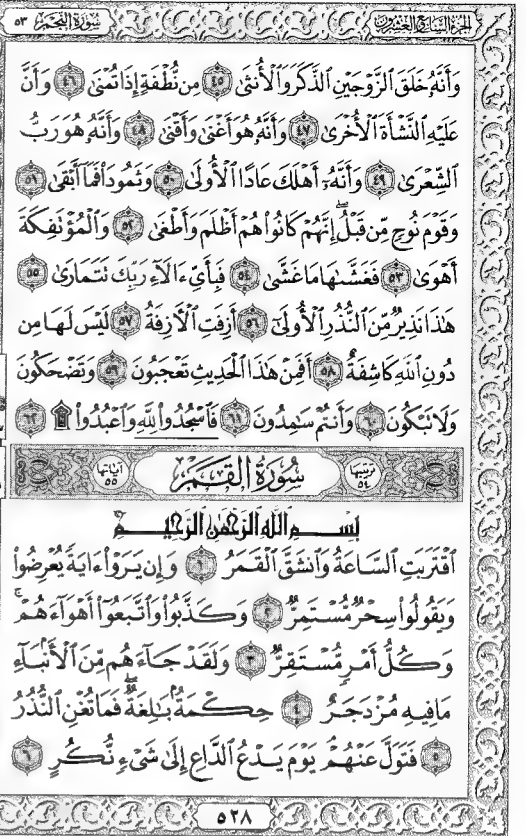 الجزء السابع والعشرون سورة النجم ٥٣
وَأَنَّهُۥ خَلَقَ ٱلزَّوْجَيْنِ ٱلذَّكَرَ وَٱلْأُنثَىٰ ٤٥ مِن نُّطْفَةٍ إِذَا تُمْنَىٰ ٤٦ وَأَنَّ
عَلَيْهِ ٱلنَّشْأَةَ ٱلْأُخْرَىٰ ٤٧ وَأَنَّهُۥ هُوَ أَغْنَىٰ وَأَقْنَىٰ ٤٨ وَأَنَّهُۥ هُوَ رَبُّ
ٱلشِّعْرَىٰ ٤٩ وَأَنَّهُۥٓ أَهْلَكَ عَادًا ٱلْأُولَىٰ ٥٠ وَثَمُودَا۟ فَمَآ أَبْقَىٰ ٥١
وَقَوْمَ نُوحٍ مِّن قَبْلُ ۖ إِنَّهُمْ كَانُوا۟ هُمْ أَظْلَمَ وَأَطْغَىٰ ٥٢ وَٱلْمُؤْتَفِكَةَ
أَهْوَىٰ ٥٣ فَغَشَّىٰهَا مَا غَشَّىٰ ٥٤ فَبِأَىِّ ءَالَآءِ رَبِّكَ تَتَمَارَىٰ ٥٥
هَـٰذَا نَذِيرٌ مِّنَ ٱلنُّذُرِ ٱلْأُولَىٰٓ ٥٦ أَزِفَتِ ٱلْـَٔازِفَةُ ٥٧ لَيْسَ لَهَا مِن
دُونِ ٱللَّهِ كَاشِفَةٌ ٥٨ أَفَمِنْ هَـٰذَا ٱلْحَدِيثِ تَعْجَبُونَ ٥٩ وَتَضْحَكُونَ
وَلَا تَبْكُونَ ٦٠ وَأَنتُمْ سَـٰمِدُونَ ٦١ فَٱسْجُدُوا۟ لِلَّهِ وَٱعْبُدُوا۟ ۩ ٦٢
ترتيبها ٥٤ سورة القمر آياتها ٥٥
بِسْمِ ٱللَّهِ ٱلرَّحْمَـٰنِ ٱلرَّحِيمِ
ٱقْتَرَبَتِ ٱلسَّاعَةُ وَٱنشَقَّ ٱلْقَمَرُ ١ وَإِن يَرَوْا۟ ءَايَةً يُعْرِضُوا۟
وَيَقُولُوا۟ سِحْرٌ مُّسْتَمِرٌّ ٢ وَكَذَّبُوا۟ وَٱتَّبَعُوٓا۟ أَهْوَآءَهُمْ ۚ
وَكُلُّ أَمْرٍ مُّسْتَقِرٌّ ٣ وَلَقَدْ جَآءَهُم مِّنَ ٱلْأَنۢبَآءِ
مَا فِيهِ مُزْدَجَرٌ ٤ حِكْمَةٌۢ بَـٰلِغَةٌ ۖ فَمَا تُغْنِ ٱلنُّذُرُ
٥ فَتَوَلَّ عَنْهُمْ ۘ يَوْمَ يَدْعُ ٱلدَّاعِ إِلَىٰ شَىْءٍ نُّكُرٍ ٦
٥٢٨